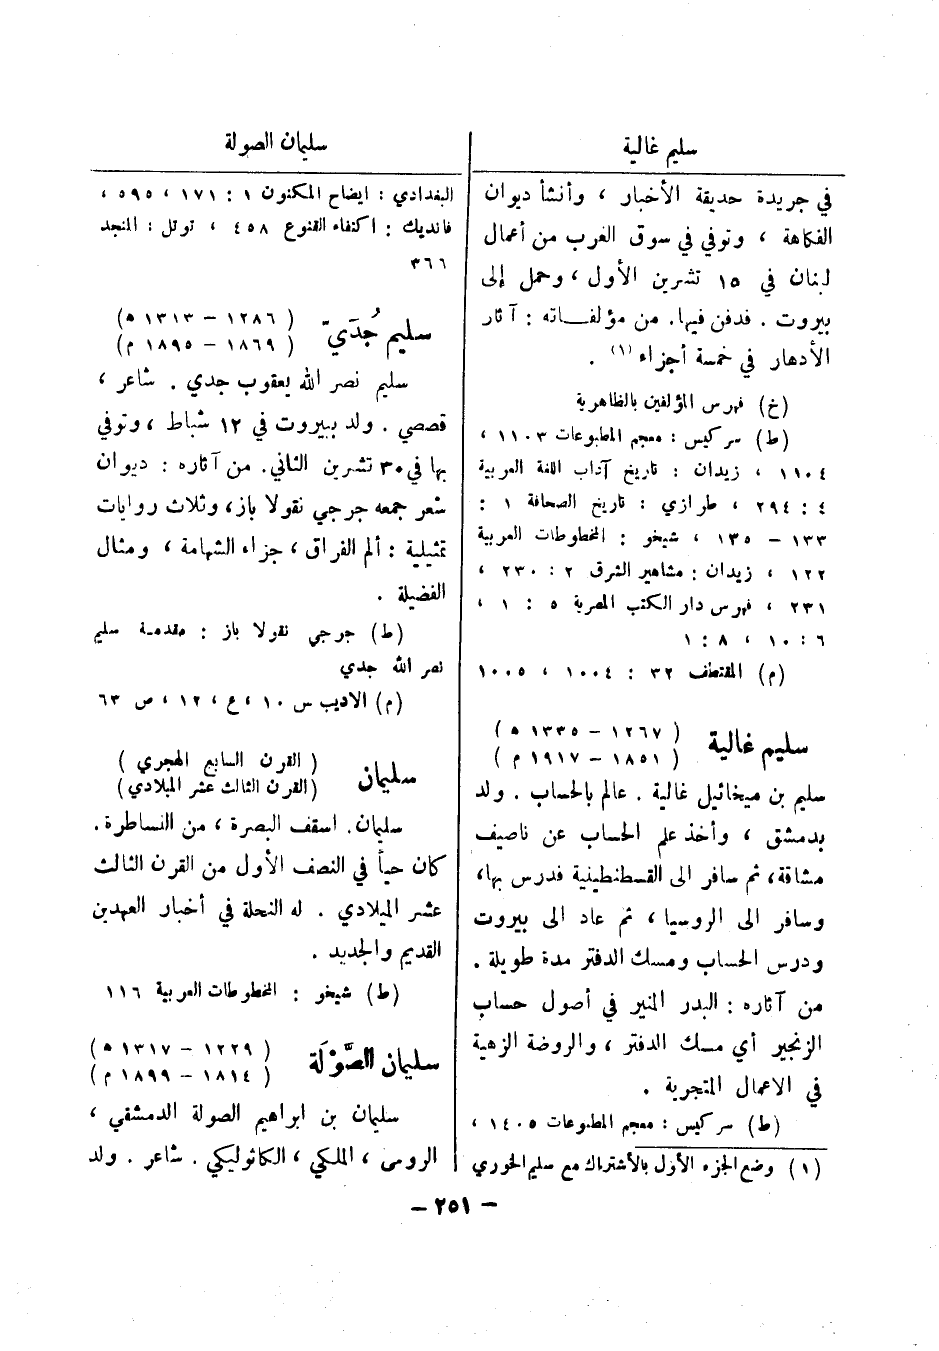 سليم غالية
في جريدة حديقة الأخبار ، وأنشأ ديوان
الفكاهة ، وتوفي في سوق الغرب من أعمال
لبنان في ١٥ تشرين الأول ، وحمل إلى
بيروت . فدفن فيها. من مؤلفـاته : آثار
الأدهار في خمسة أجزاء (١) .
(خ) فهرس المؤلفين بالظاهرية
(ط) سركيس : معجم المطبوعات ١١٠٣ ،
١١٠٤ ، زيدان : تاريخ آداب اللغة العربية
٤ : ٢٩٤ ، طرازي : تاريخ الصحافة ١ :
١٣٣ – ١٣٥ ، شيخو : المخطوطات العربية
١٢٢ ، زيدان : مشاهير الشرق ٢ : ٢٣٠ ،
٢٣١ ، فهرس دار الكتب المصرية ٥ : ١ ،
٦ : ١٠ ، ٨ : ١
(م) المقتطف ٣٢ : ١٠٠٤ ، ١٠٠٥
سليم غالية
( ١٢٦٧ – ١٣٣٥ ه )
( ١٨٥١ – ١٩١٧ م )
سليم بن ميخائيل غالية . عالم بالحساب . ولد
بدمشق ، وأخذ علم الحساب عن ناصيف
مشاقة ، ثم سافر الى القسطنطينية فدرس بها،
وسافر الى الروسيا ، ثم عاد الى بيروت
ودرس الحساب ومسك الدفتر مدة طويلة .
من آثاره : البدر المنير في أصول حساب
الزنجير أي مسك الدفتر ، والروضة الزهية
في الاعمال المتجرية .
(ط) سركيس : معجم المطبوعات ١٤٠٥ ،
(١) وضع الجزء الأول بالأشتراك مع سليم الخوري
سليمان الصولة
البغدادي : ايضاح المكنون ١ : ١٧١ ، ٥٩٥ ،
فانديك : اكتفاء القنوع ٤٥٨ ، توتل : المنجد
٣٦٦
سليم جُدَيّ
( ١٢٨٦ – ١٣١٣ ه )
( ١٨٦٩ – ١٨٩٥ م )
سليم نصر الله يعقوب جدي . شاعر ،
قصصي . ولد ببيروت في ١٢ شباط ، وتوفي
بها في ٣٠ تشرين الثاني. من آثاره : ديوان
شعر جمعه جرجي نقولا باز ، وثلاث روايات
تمثيلية : ألم الفراق ، جزاء الشهامة ، ومثال
الفضيلة .
(ط) جرجي نقولا باز : مقدمة سليم
نصر الله جدي
(م) الاديب س ١٠ ، ع ، ١٢ ، ص ٦٣
سليمان
( القرن السابع الهجري )
(القرن الثالث عشر الميلادي)
سليمان. اسقف البصرة ، من النساطرة.
كان حياً في النصف الأول من القرن الثالث
عشر الميلادي . له النحلة في أخبار العهدين
القديم والجديد .
(ط) شيخو : المخطوطات العربية ١١٦
سليمان الصَّوْلَة
( ١٢٢٩ – ١٣١٧ ه )
( ١٨١٤ – ١٨٩٩ م )
سليمان بن ابراهيم الصولة الدمشقي ،
الرومي ، الملكي ، الكاثوليكي . شاعر . ولد
– ٢٥١ –